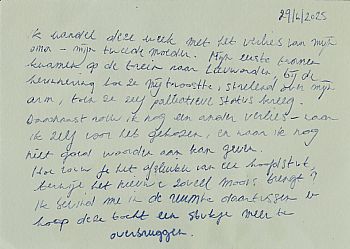 29/4/2025
Ik wandel deze week met het verlies van mijn
oma - mijn tweede moeder. Mijn eerste tranen
kwamen op de trein naar Leeuwarden, bij de
herinnering hoe ze mij troostte, strelend over mijn
arm, toen ze zelf palliatieve status kreeg.
Daarnaast rouw ik nog een ander verlies - waar
ik zelf voor heb gekozen, en waar ik nog
niet goed woorden aan kan geven.
Hoe rouw je het afsluiten van een hoofdstuk,
terwijl het nieuwe zoveel moois brengt?
Ik bevind me in de ruimte daartussen en
hoop deze tocht een stukje meer te
overbruggen.